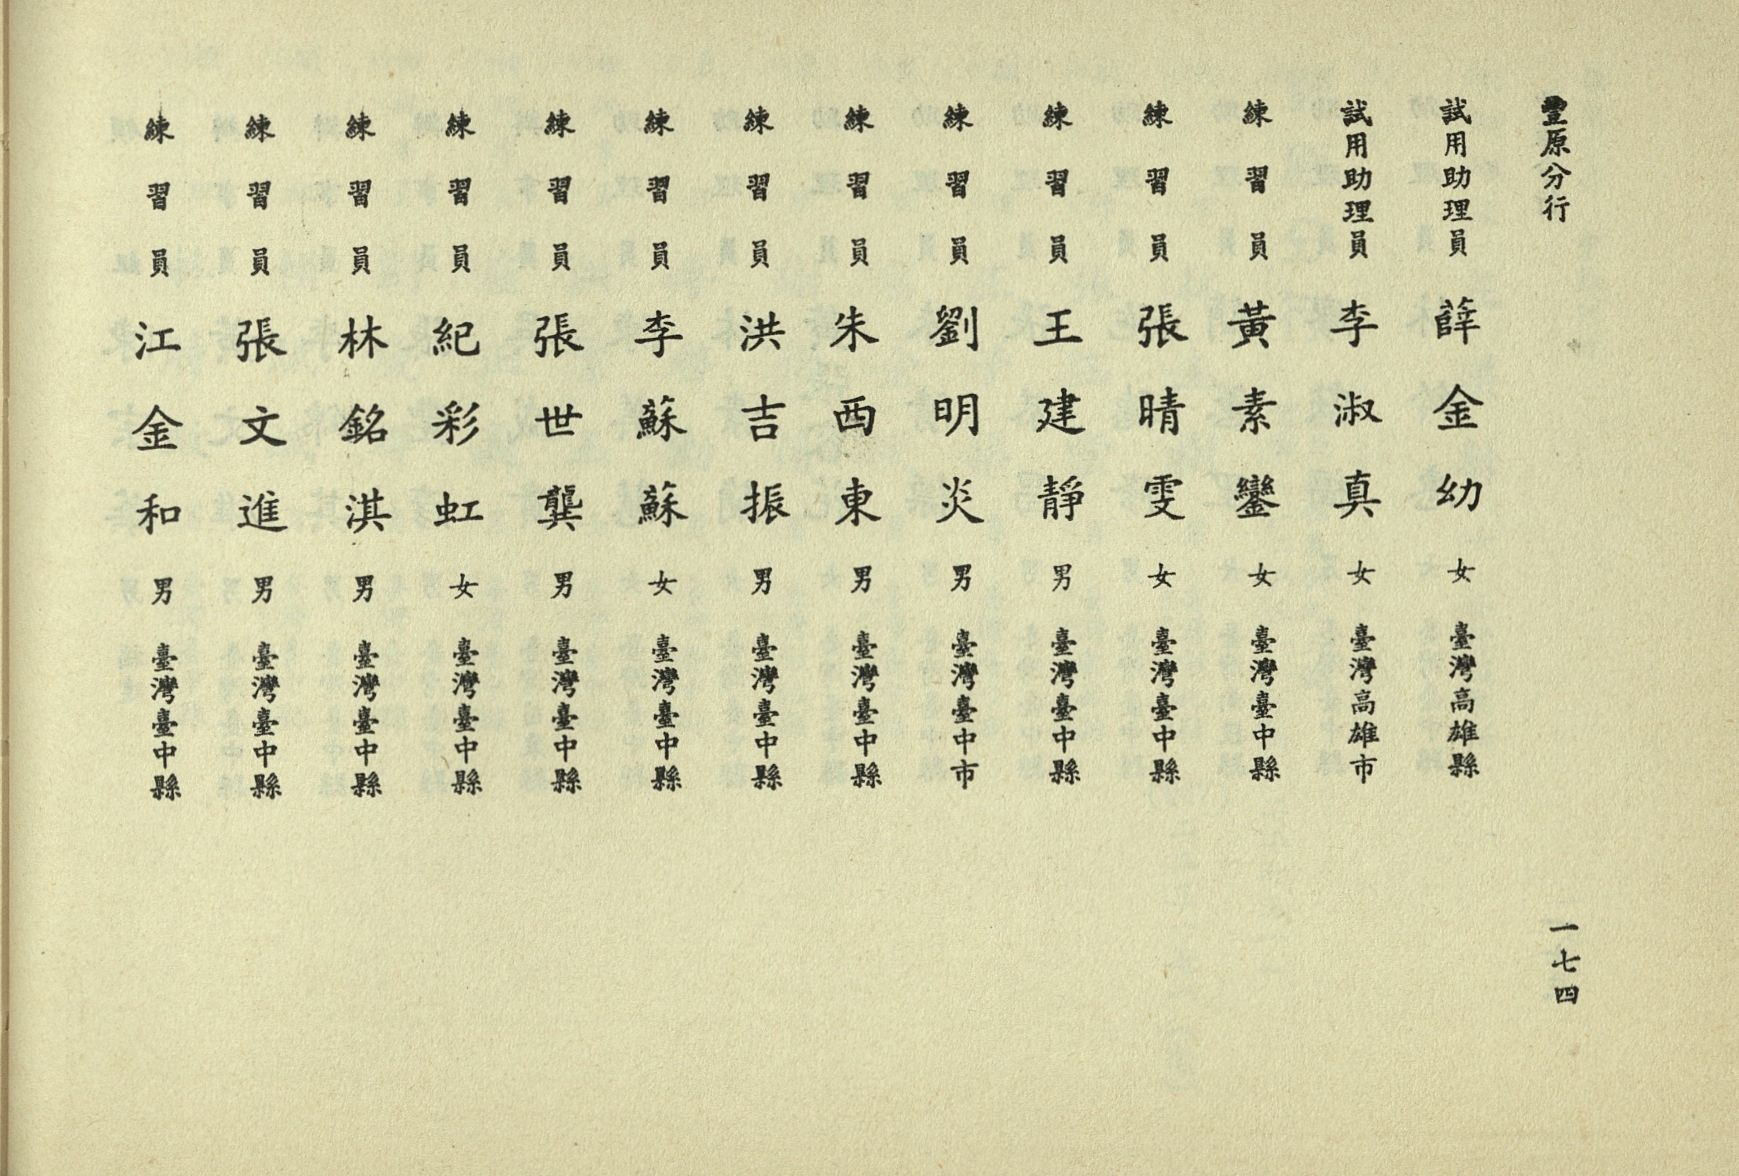 豐原分行
一七四
試用助理員 薛金幼 女 臺灣高雄縣
試用助理員 李淑真 女 臺灣高雄市
練習員 黃素鑾 女 臺灣臺中縣
練習員 張晴雯 女 臺灣臺中縣
練習員 王建靜 男 臺灣臺中縣
練習員 劉明炎 男 臺灣臺中市
練習員 朱西東 男 臺灣臺中縣
練習員 洪吉振 男 臺灣臺中縣
練習員 李蘇蘇 女 臺灣臺中縣
練習員 張世龔 男 臺灣臺中縣
練習員 紀彩虹 女 臺灣臺中縣
練習員 林銘淇 男 臺灣臺中縣
練習員 張文進 男 臺灣臺中縣
練習員 江金和 男 臺灣臺中縣